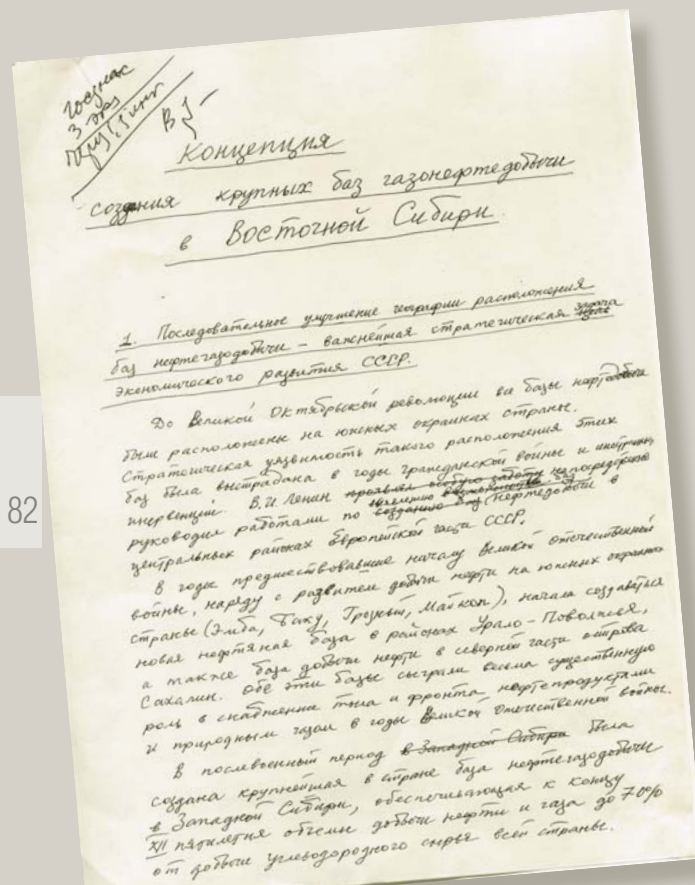 3 экз
В 1-
Концепция
создания крупных баз газонефтедобычи
в Восточной Сибири.
1. Последовательное улучшение географии расположения
баз нефтегазодобычи – важнейшая стратегическая задача
экономического развития СССР.
До Великой Октябрьской революции все базы нефтедобычи
были расположены на южных окраинах страны.
Стратегическая уязвимость такого расположения этих
баз была выстрадана в годы гражданской войны и иностранн.
интервенции. В.И. Ленин проявлял особую заботу непосредственно
руководил работами по созданию баз нефтедобычи в
центральных районах Европейской части СССР.
В годы предшествовавшие началу Великой отечественной
войны, наряду с развитием добычи нефти на южных окраинах
страны (Эмба, Баку, Грозный, Майкоп), начала создаваться
новая нефтяная база в районах Урало-Поволжья,
а также база добычи нефти в северной части острова
Сахалин. Обе эти базы сыграли весьма существенную
роль в снабжении тыла и фронта нефтепродуктами
и природным газом в годы Великой Отечественной войны.
В послевоенный период в Западной Сибири была
создана крупнейшая в стране база нефтегазодобычи
в Западной Сибири, обеспечивающая к концу
XII пятилетия объемы добычи нефти и газа до 70%
от добычи углеводородного сырья всей страны.
82